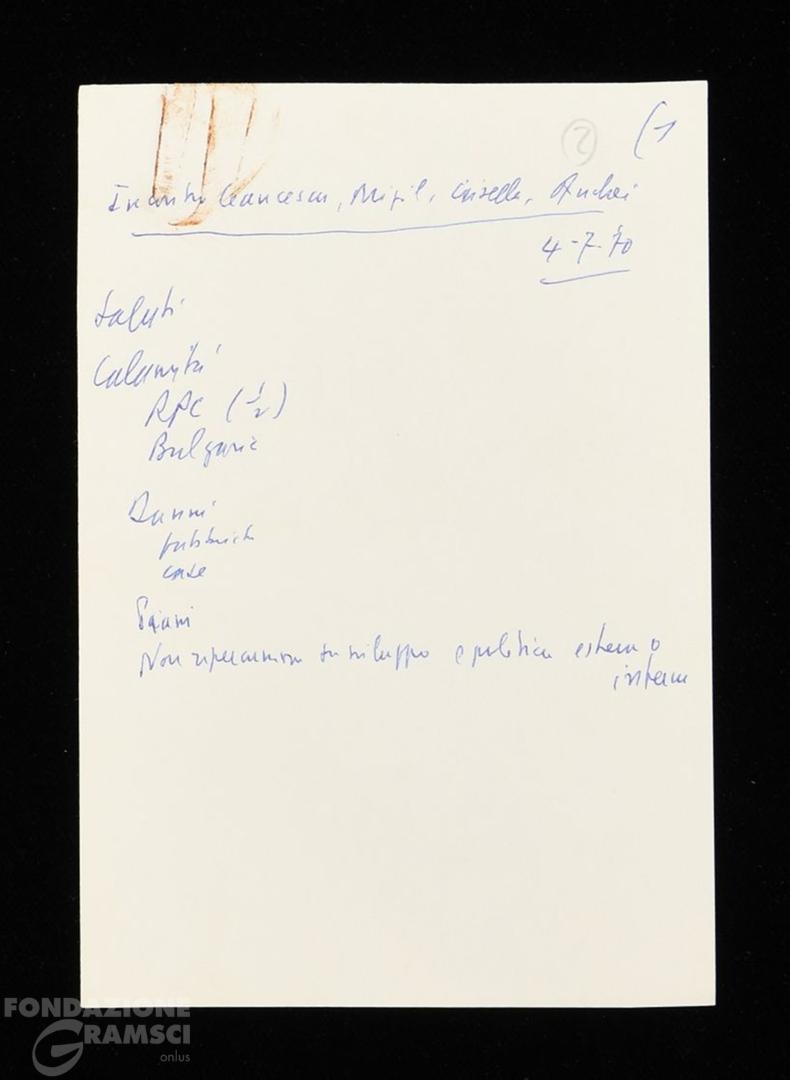 (1
2
Incontro Ceaucescu, Mizil, Gisella, Andrei
4-7-70
Saluti
Calamità
RPC (½)
Bulgaria
Danni
fabbriche
case
Piani
Non ripercussioni su sviluppo e politica estera o
interna
FONDAZIONE
GRAMSCI
onlus